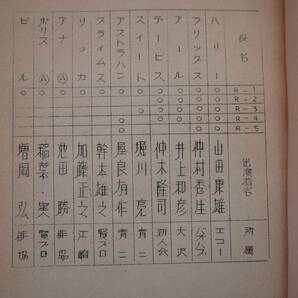 役名 R-1 R-2 R-3 R-4 R-5 出演者名 所属
ハリー ○ 山田康雄 エコー
ブリックス ○ ○ ○ ○ ○ 仲村秀生 バオバブ
アール ○ ○ ○ ○ 井上和彦 大沢
デービス ○ ○ ○ ○ 仲木隆司 初人会
スイート ○ ○ ○ 堀川亮 青二
アストラハン ○ ○ ○ 屋良有作 青二
クライムス ○ 幹本雄之 賢プロ
リッカ ○ 加藤正之 江崎
アナ Ⓐ ○ 池田勝 俳協
ポリス Ⓐ ○ 稲葉実 賢プロ
ビル ○ 増岡弘 俳協